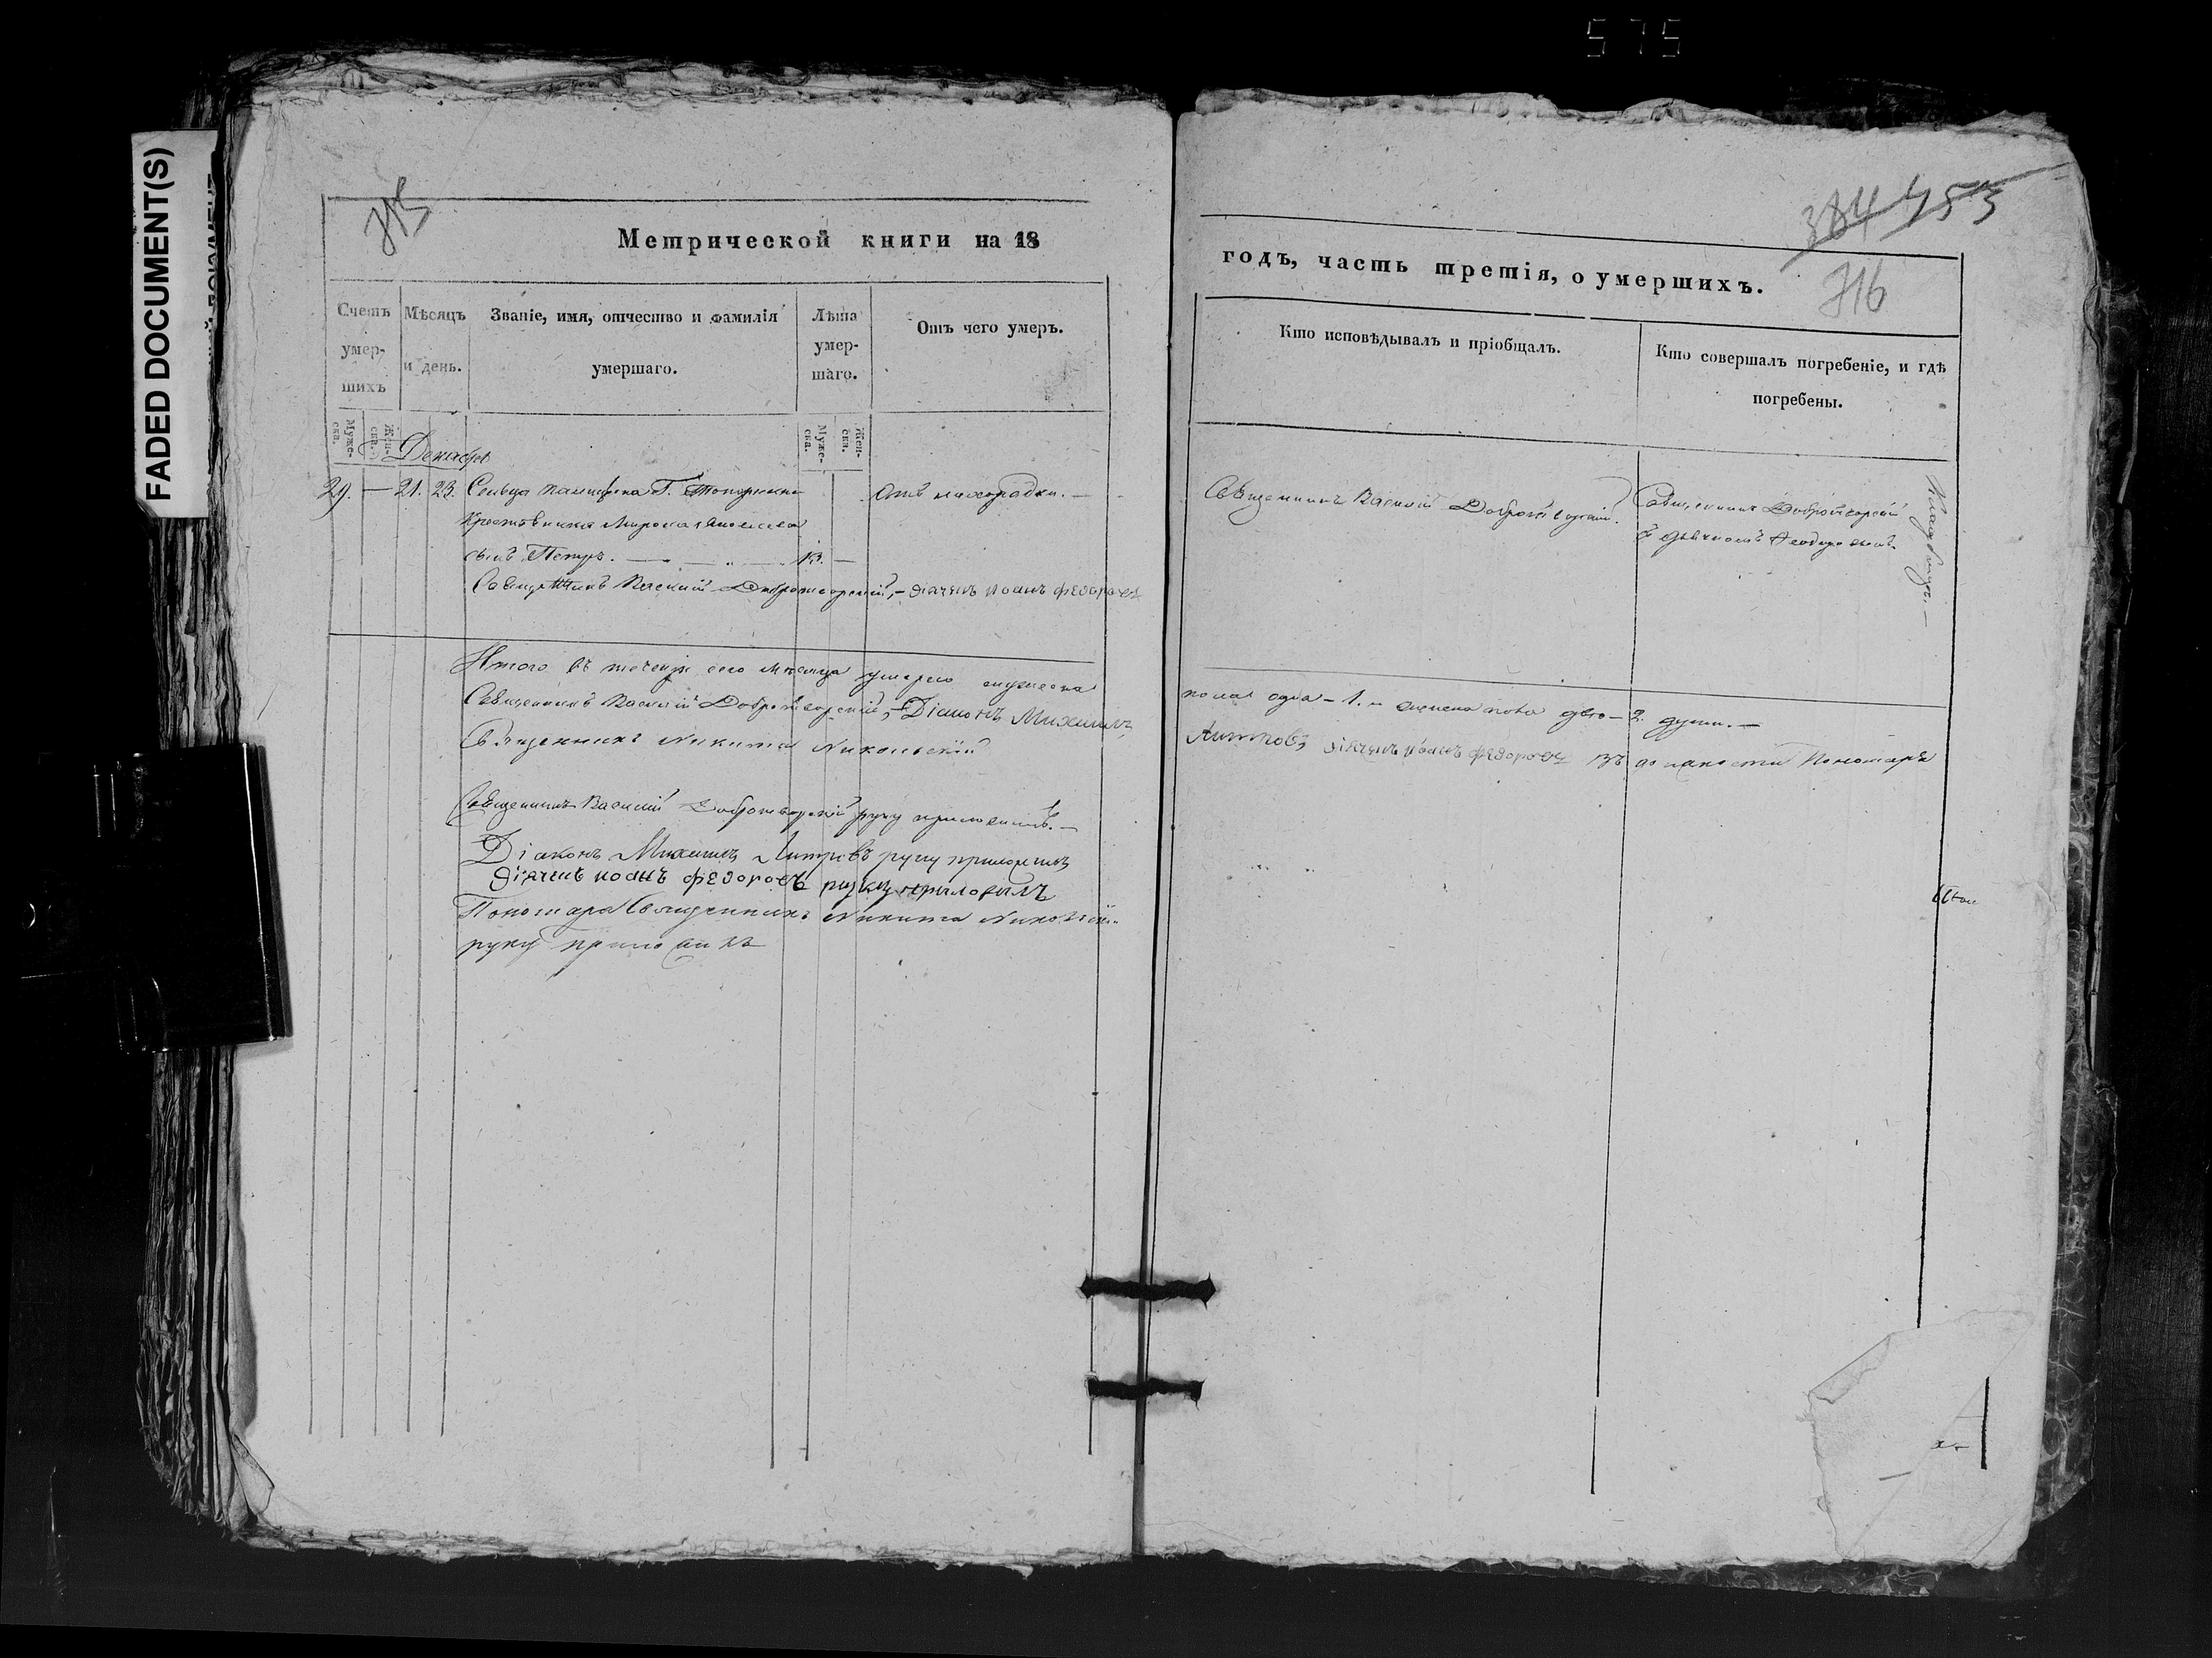 575
FADED DOCUMENT(S)
715
Метрической книги на 18
Счетъ умер- шихъ
Мѣсяцъ и день.
Званіе, имя, отчество и фамилія умершаго.
Лѣта умер- шаго.
Отъ чего умеръ.
Муже- ска.
Жен- ска.
Муже- ска.
Жен- ска.
Декабрь
29. — 21. 23. Сельца
сынъ Петръ. — 13. —
Отъ лихорадки. —
Священникъ Василий Добротворский, — дiячекъ иоанъ федоровъ
Итого въ теченіи сего месяца умерло мужеска
Священникъ Василий Добротворский, Діаконъ Михаилъ
Священникъ Никита Никольскій
Священникъ Василий Добротворский руку приложилъ. —
Діаконъ Михаилъ руку приложилъ
дiячекъ иоанъ федоровъ руку приложилъ
Пономаря Священникъ Никита
руку приложилъ
384 453
716
годъ, часть третія, о умершихъ.
Кто исповѣдывалъ и пріобщалъ.
Кто совершалъ погребеніе, и гдѣ погребены.
Священникъ Василий Добротворский.
Священникъ Добротворский
съ дьячкомъ
пола одна — 1. и женска пола две — 2. души. —
дiячекъ иоанъ федоровъ въ должности Пономаря